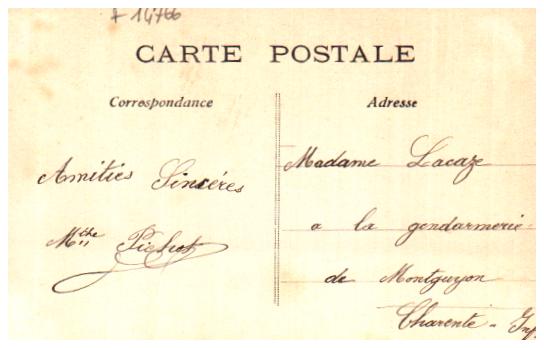 A 14766
CARTE POSTALE
Correspondance
Amitiés Sincéres
Mthe Pichot
Adresse
Madame Lacaze
a la gendarmerie
de Montguyon
Charente - Inf.